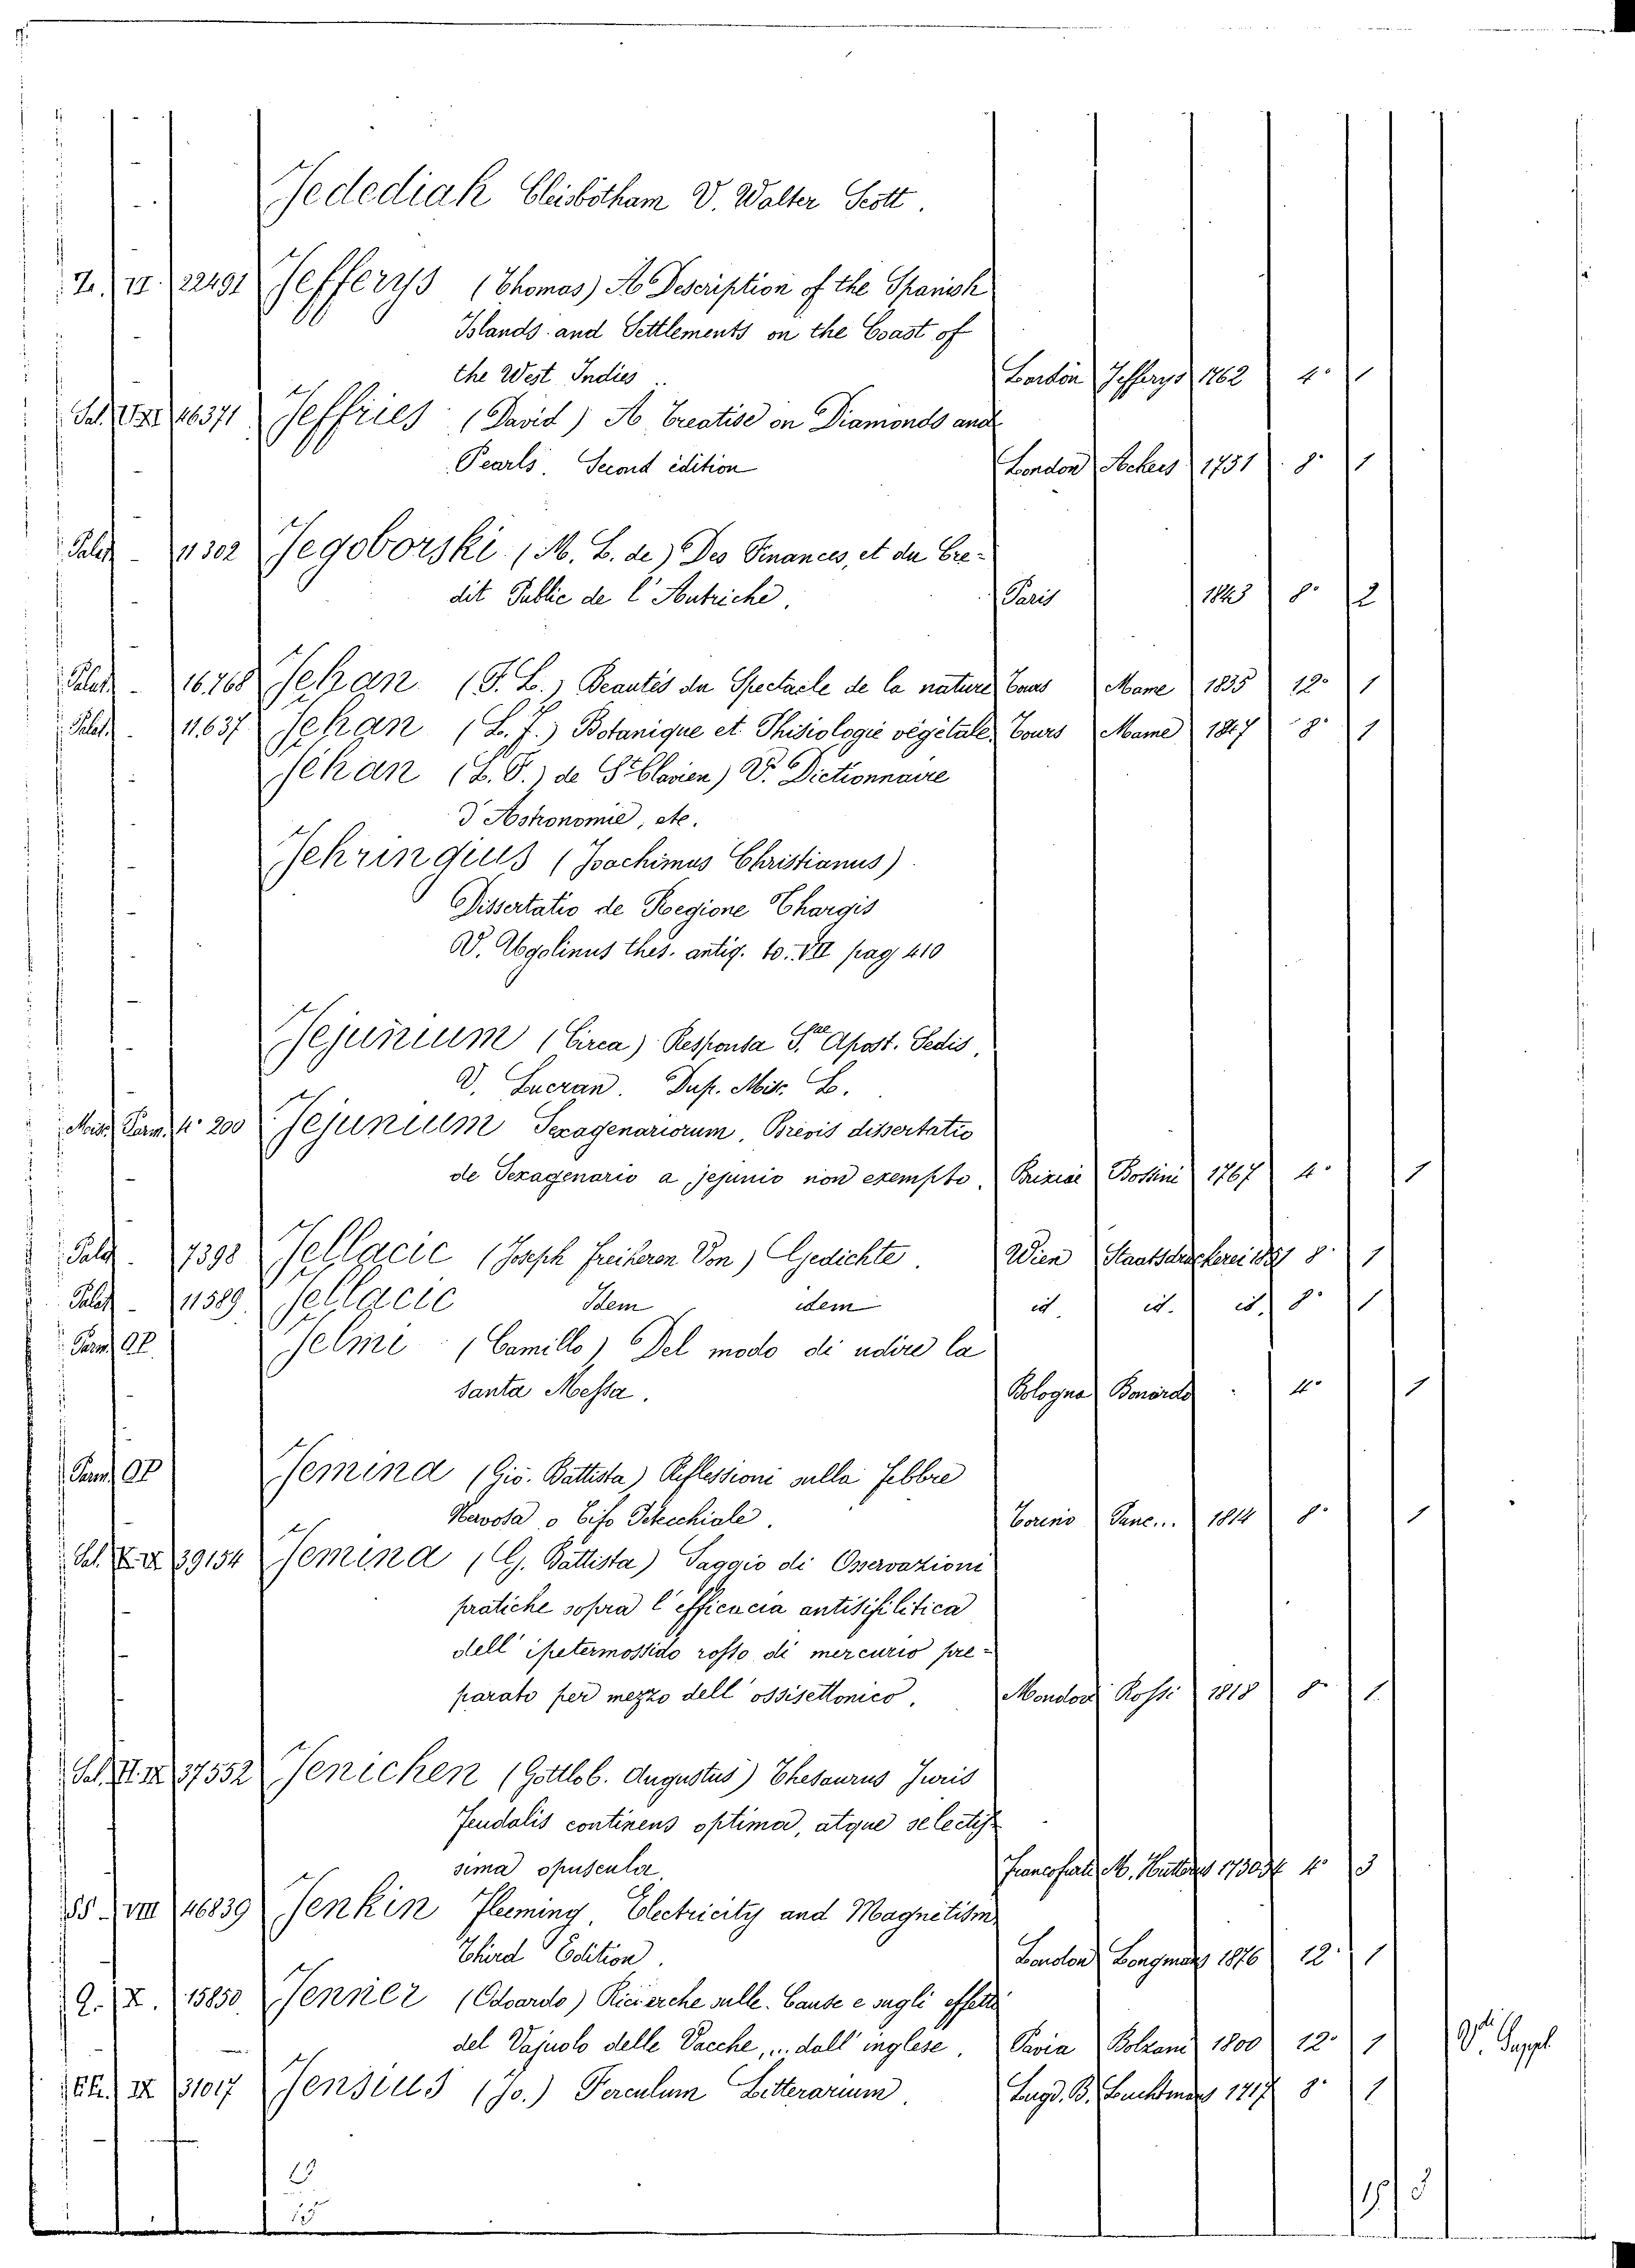 Jedediah Cleisbotham V. Walter Scott.
Z. VI. 22491 Jefferys (Thomas) A Description of the Spanish
Islands and Settlements on the Coast of
the West Indies London Jefferys 1762 4° 1
Sal. 46371 Jeffries (David) A Treatise on Diamonds and
Pearls. Second edition London Ackers 1751 8° 1
Palat. 11302 Jegoborski (M. L. de) Des Finances, et du Cre-
dit Public de l'Autriche. Paris 1843 8° 2
Palat. 16.768 Jehan (F. L.) Beautés du Spectacle de la nature Tours Mame 1835 12° 1
Palat. 11.637 Jehan (L. F.) Botanique et Phisiologie végétale. Tours Mame 1847 8° 1
Jehan (L. F.) de St Clavien) V. Dictionnaire
d'Astronomie, etc.
Jehringius (Joachimus Christianus)
Dissertatio de Regione Thargis
V. Ugolinus thes. antiq. to. VII pag 410
Jejunium (Circa) Responsa Sae Apost. Sedis,
V. Lucran. Dup. Mis. L.
Misc. Parm. 4° 200 Jejunium Sexagenariorum, Brevis dissertatio
de Sexagenario a jejunio non exempto. Brixiae Bossini 1767 4° 1
Palat. 7398 Jellacic (Joseph Freiheren Von) Gedichte. Wien Staatsdruckerei 1851 8° 1
Palat. 11589 Jellacic Idem idem id. id. id. 8° 1
Parm. OP. Jelmi (Camillo) Del modo di udire la
santa Messa. Bologna Benardo 4° 1
Parm. OP Jemina (Gio. Battista) Reflessioni sulla febbre
Nervosa o Tifo Petecchiale. Torino Pane... 1814 8° 1
Sal. 39154 Jemina (G. Battista) Saggio di Osservazioni
pratiche sopra l'efficacia antisifilitica
dell' ipetermossido rosso di mercurio pre-
parato per mezzo dell' ossisettonico. Mondovi Rossi 1818 8° 1
Sal. 37552 Jenichen (Gottlob. Augustus) Thesaurus Juris
Feudalis continens optima, atque selectis-
sima opuscula. Francofurti M. 4° 3
SS. VIII 46839 Jenkin Fleeming, Electricity and Magnetism,
Third Edition. London Longmans 1876 12° 1
Q. X. 15850 Jenner (Odoardo) Ricerche sulle Cause e sugli effetti
del Vajuolo delle Vacche,... dall'inglese. Pavia Bolzani 1800 12° 1 V. Suppl
IX 31017 Jensius (Jo.) Ferculum Litterarium. Lugd. B. Luchtmans 1717 8° 1
15
15 3